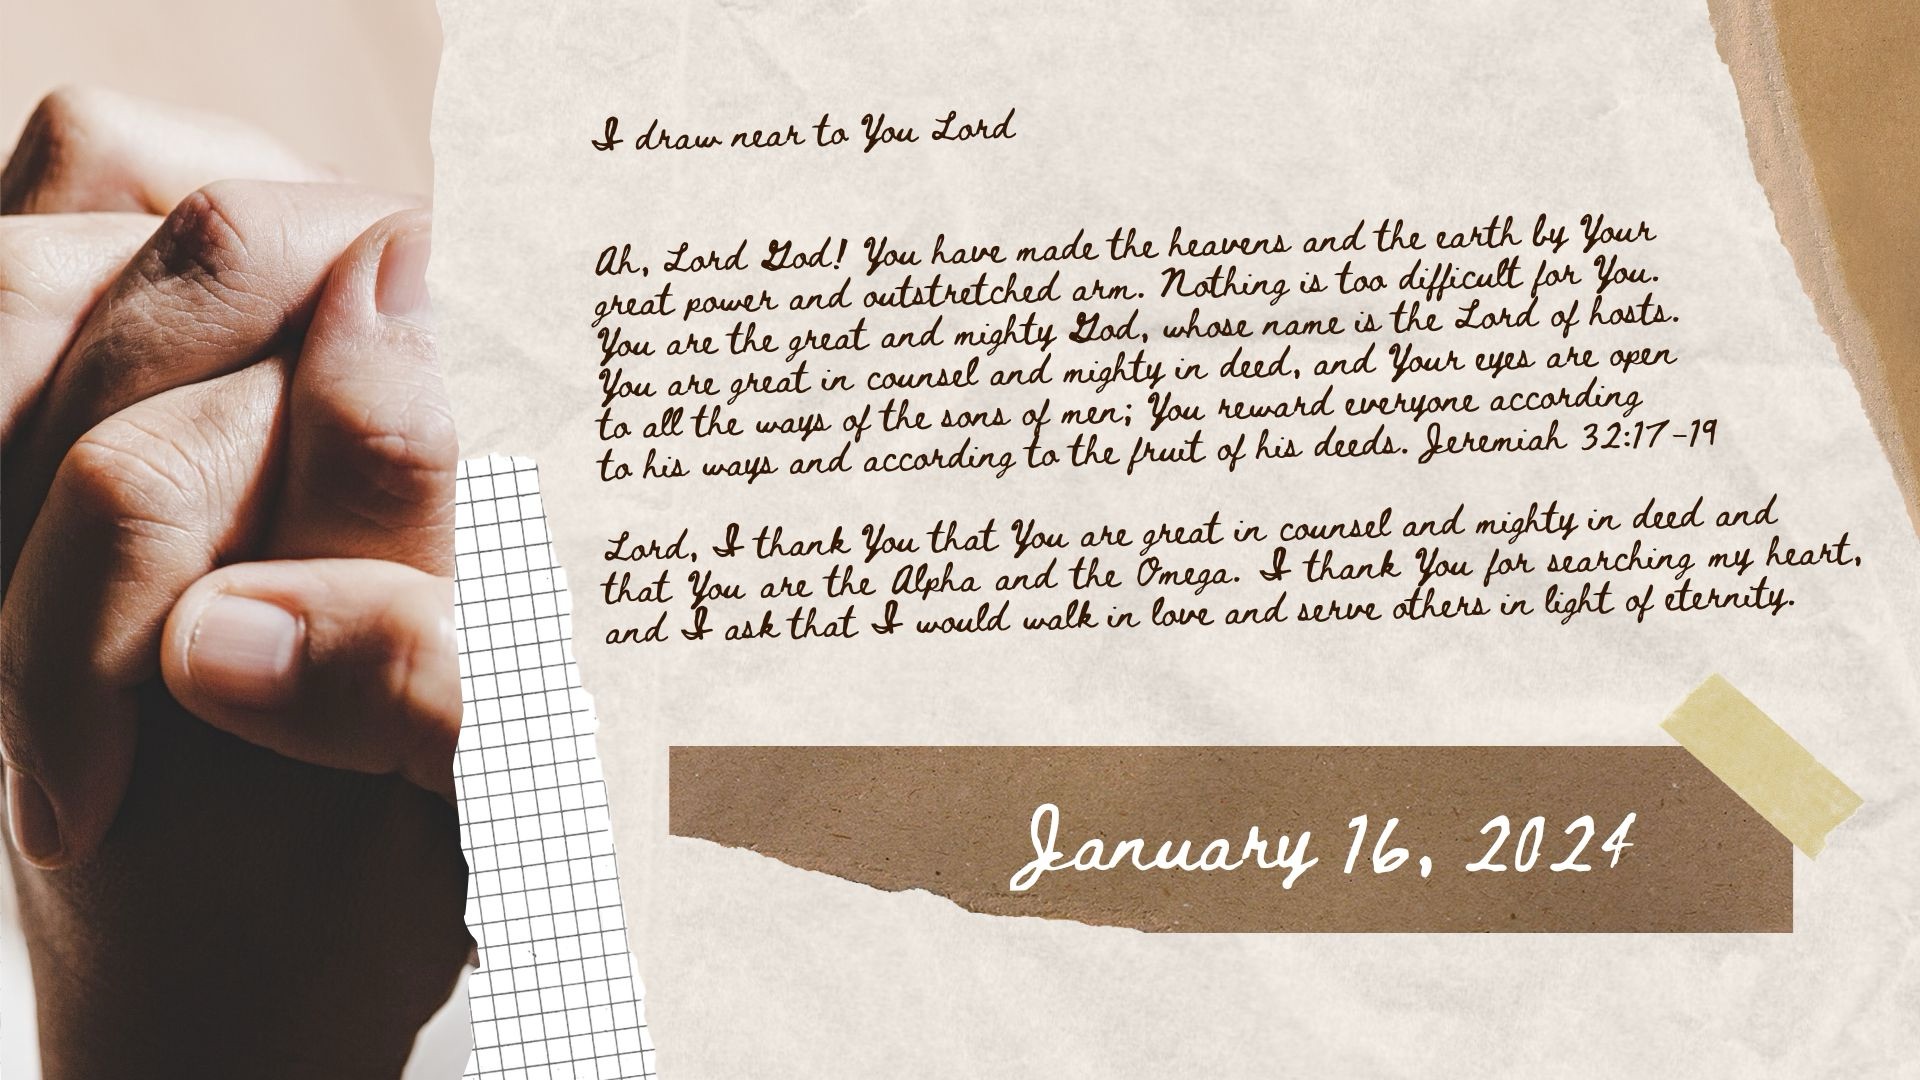 I draw near to You Lord
Ah, Lord God! You have made the heavens and the earth by Your
great power and outstretched arm. Nothing is too difficult for You.
You are the great and mighty God, whose name is the Lord of hosts.
You are great in counsel and mighty in deed, and Your eyes are open
to all the ways of the sons of men; You reward everyone according
to his ways and according to the fruit of his deeds. Jeremiah 32:17-19
Lord, I thank You that You are great in counsel and mighty in deed and
that You are the Alpha and the Omega. I thank You for searching my heart,
and I ask that I would walk in love and serve others in light of eternity.
January 16, 2024